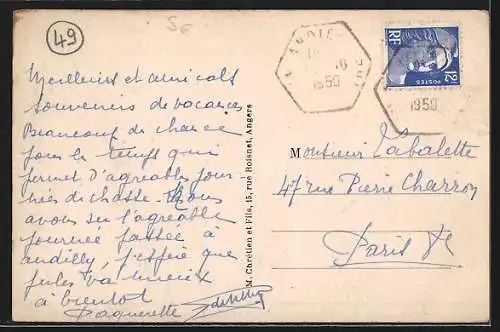 49
5€
1950
1950
RF
12F
POSTES
Meilleurs et amicals
souvenirs de vacances
Beaucoup de chance
pour le temps qui
permet d'agréables jour-
nées de chasse. Nous
avons su l'agréable
journée passée à
andilly, j'espère que
Jules va mieux
à bientot
Paquerette
M. Chrétien et Fils, 15, rue Boisnet, Angers
Monsieur Labalette
47 rue Pierre Charron
Paris